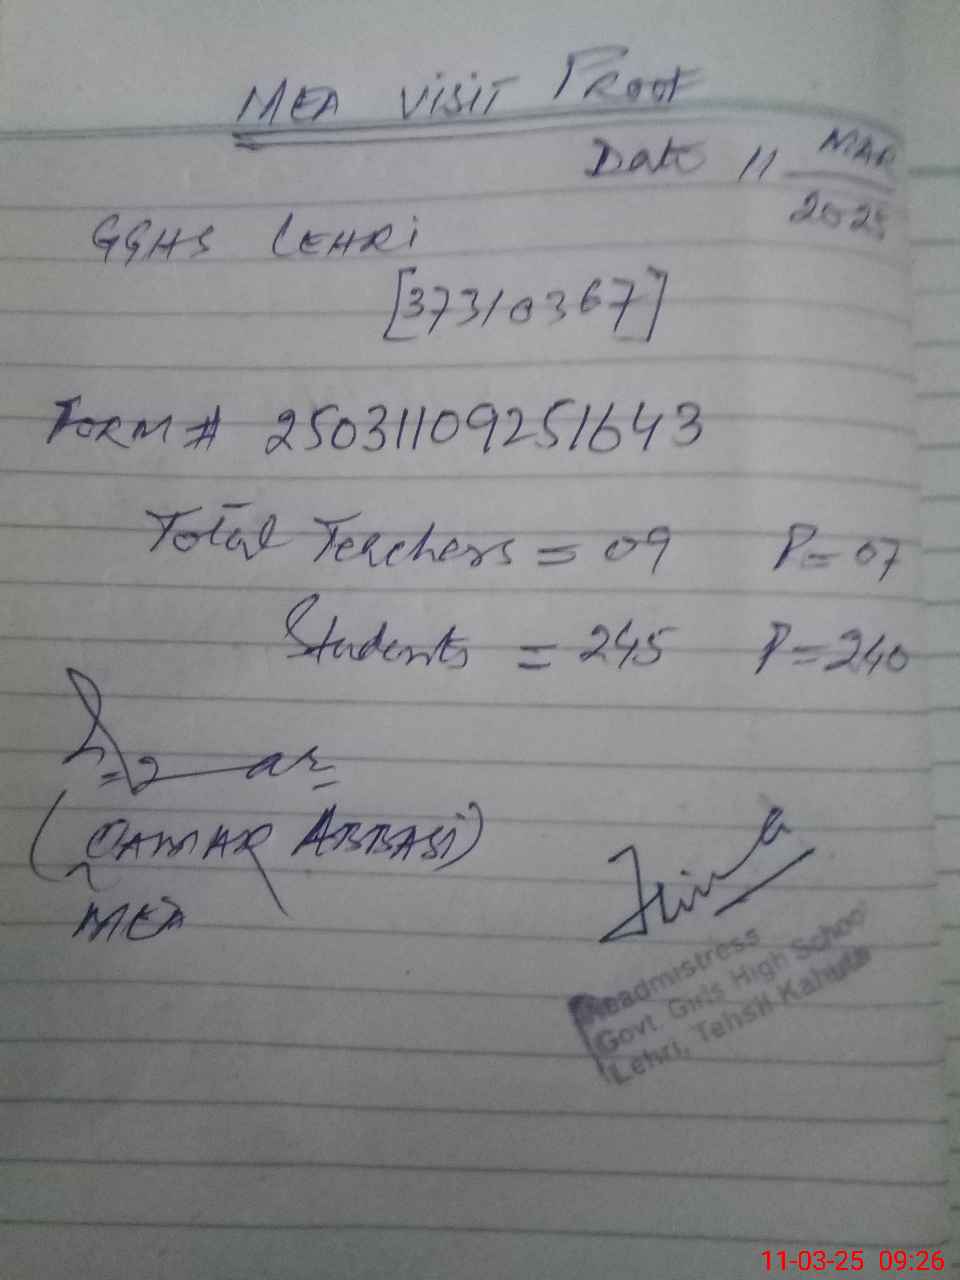 MEA Visit Proof
Date 11 MAR
2025
GGHS LEHRi
[37310367]
FORM # 25031109251643
Total Teachers = 09 P= 07
Students = 245 P=240
(QAMAR ABBASi)
MEA
Headmistress
Govt. Girls High School
Lehri, Tehsil Kahuta
11-03-25 09:26